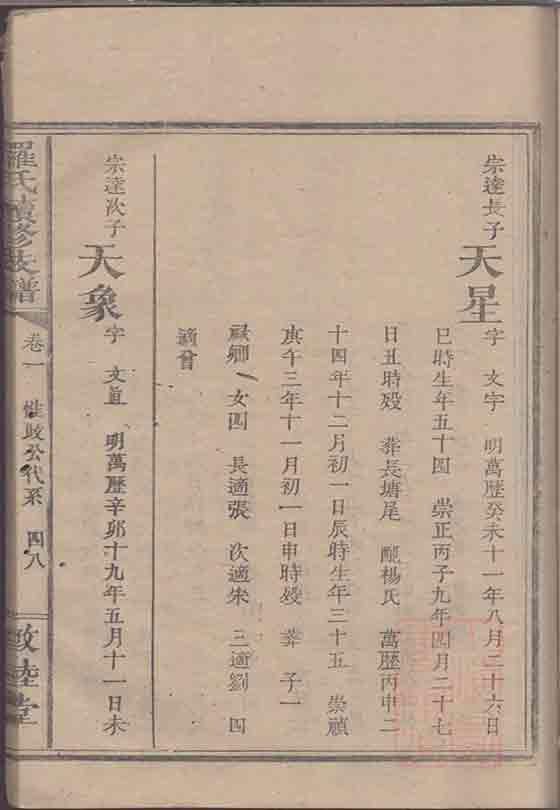 崇達長子
天星
字 文宇 明萬歷癸未十一年八月二十六日
巳時生年五十四 崇正丙子九年四月二十七
日丑時殁 葬長塘尾 配楊氏 萬歷丙申二
十四年十二月初一日辰時生年三十五 崇禎
庚午三年十一月初一日申時殁 葬 子一
猷卿 女四 長適張 次適朱 三適劉 四
適曾
崇達次子
天象
字 文 明萬歷辛卯十九年五月十一日未
羅氏續修族譜
卷一 惟政公代系 四八
敦睦堂